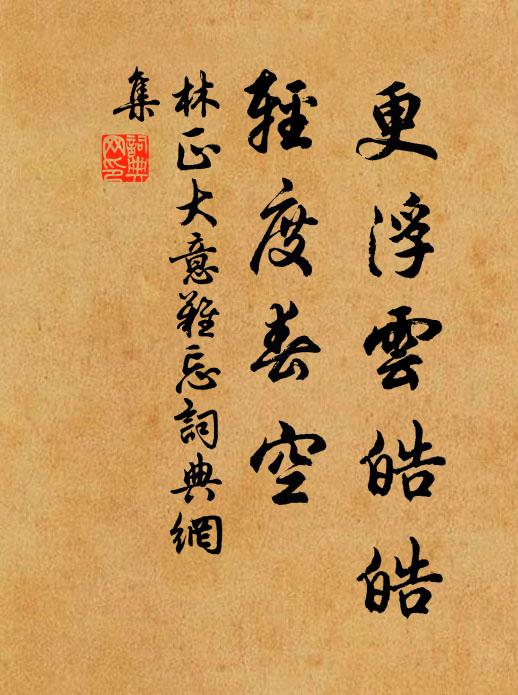 更浮雲皓皓
輕度春空
林正大意難忘詞典網
集
詞典网印